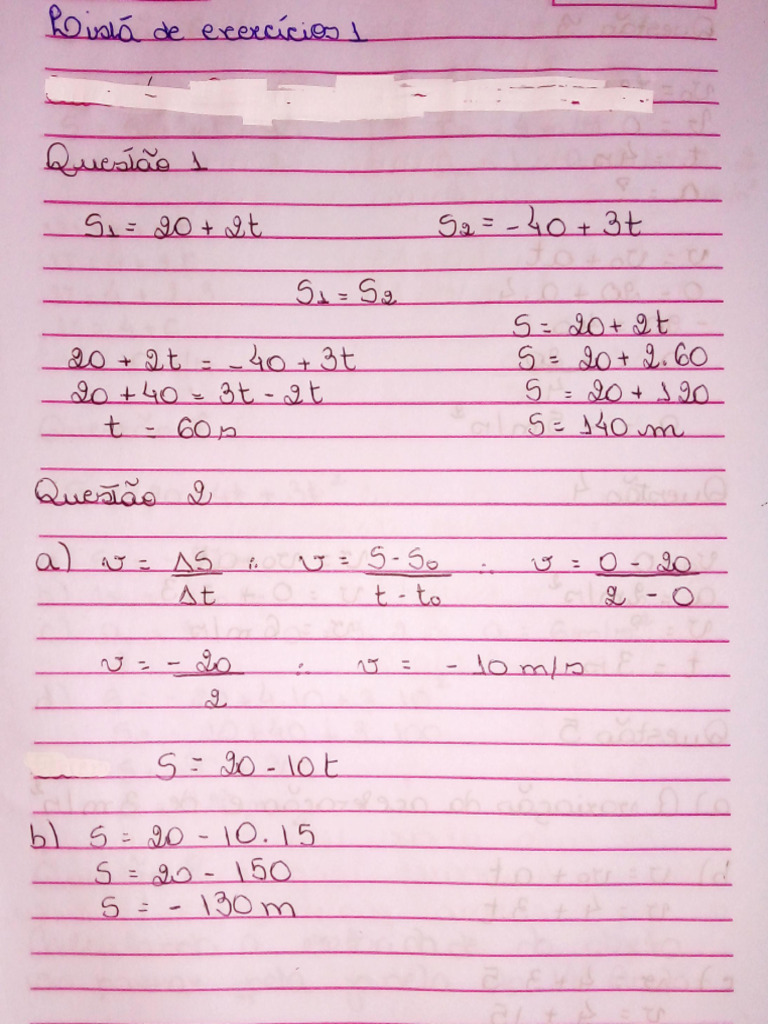 Lista de exercícios 1
Questão 1
S₁ = 20 + 2t S₂ = -40 + 3t
S₁ = S₂
S = 20 + 2t
20 + 2t = -40 + 3t S = 20 + 2.60
20 + 40 = 3t - 2t S = 20 + 120
t = 60s S = 140 m
Questão 2
a) v = ΔS/Δt ∴ v = S - S₀/t - t₀ ∴ v = 0 - 20/2 - 0
v = - 20/2 ∴ v = - 10 m/s
S = 20 - 10t
b) S = 20 - 10.15
S = 20 - 150
S = - 130 m